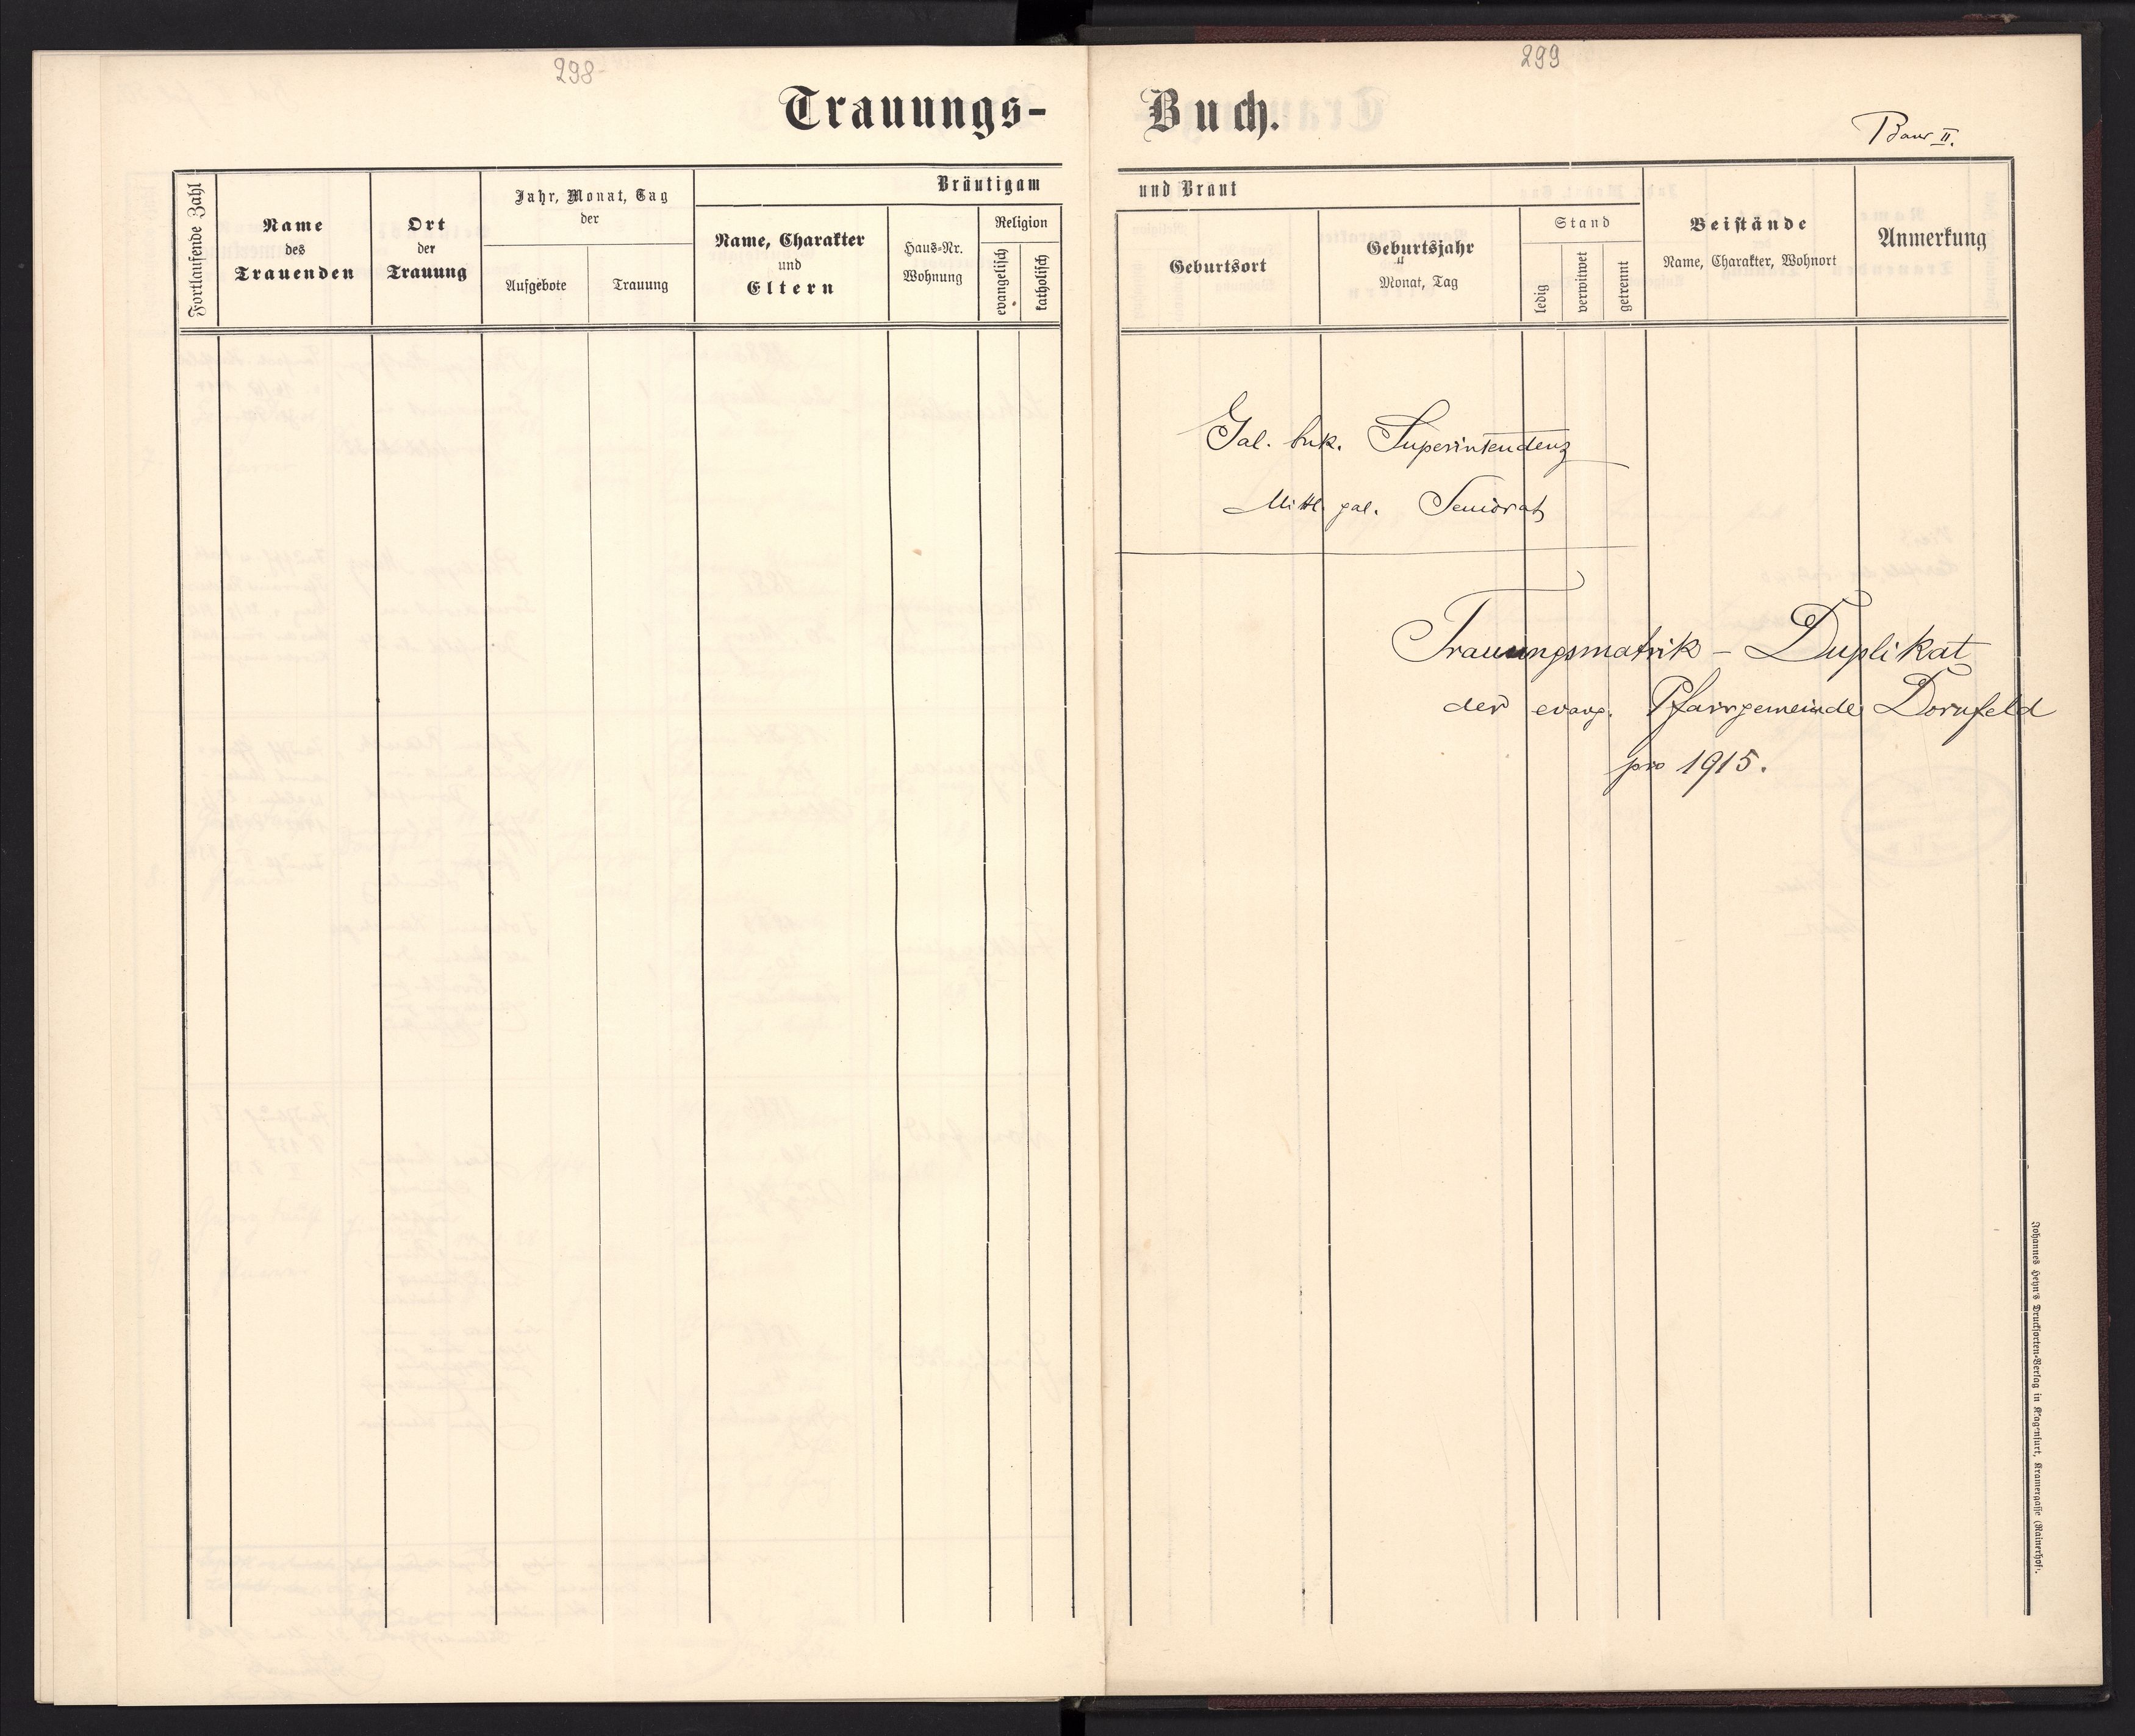 298
299
Trauungs-
Buch.
Baur II.
Fortlaufende Zahl
Name
des
Trauenden
Ort
der
Trauung
Jahr, Monat, Tag
der
Aufgebote
Trauung
Bräutigam
Name, Charakter
und
Eltern
Haus-Nr.
Wohnung
Religion
evangelisch
katholisch
und Braut
Geburtsort
Geburtsjahr
Monat, Tag
Stand
ledig
verwitwet
getrennt
Beistände
Name, Charakter, Wohnort
Anmerkung
Gal. buk. Superintendenz
Mittl. gal. Seniorat
Trauungsmatrik - Duplikat
der evang. Pfarrgemeinde Dornfeld
pro 1915.
Johannes Heyn's Drucksorten-Verlag in Klagenfurt, Kramergasse (Rainerhof).